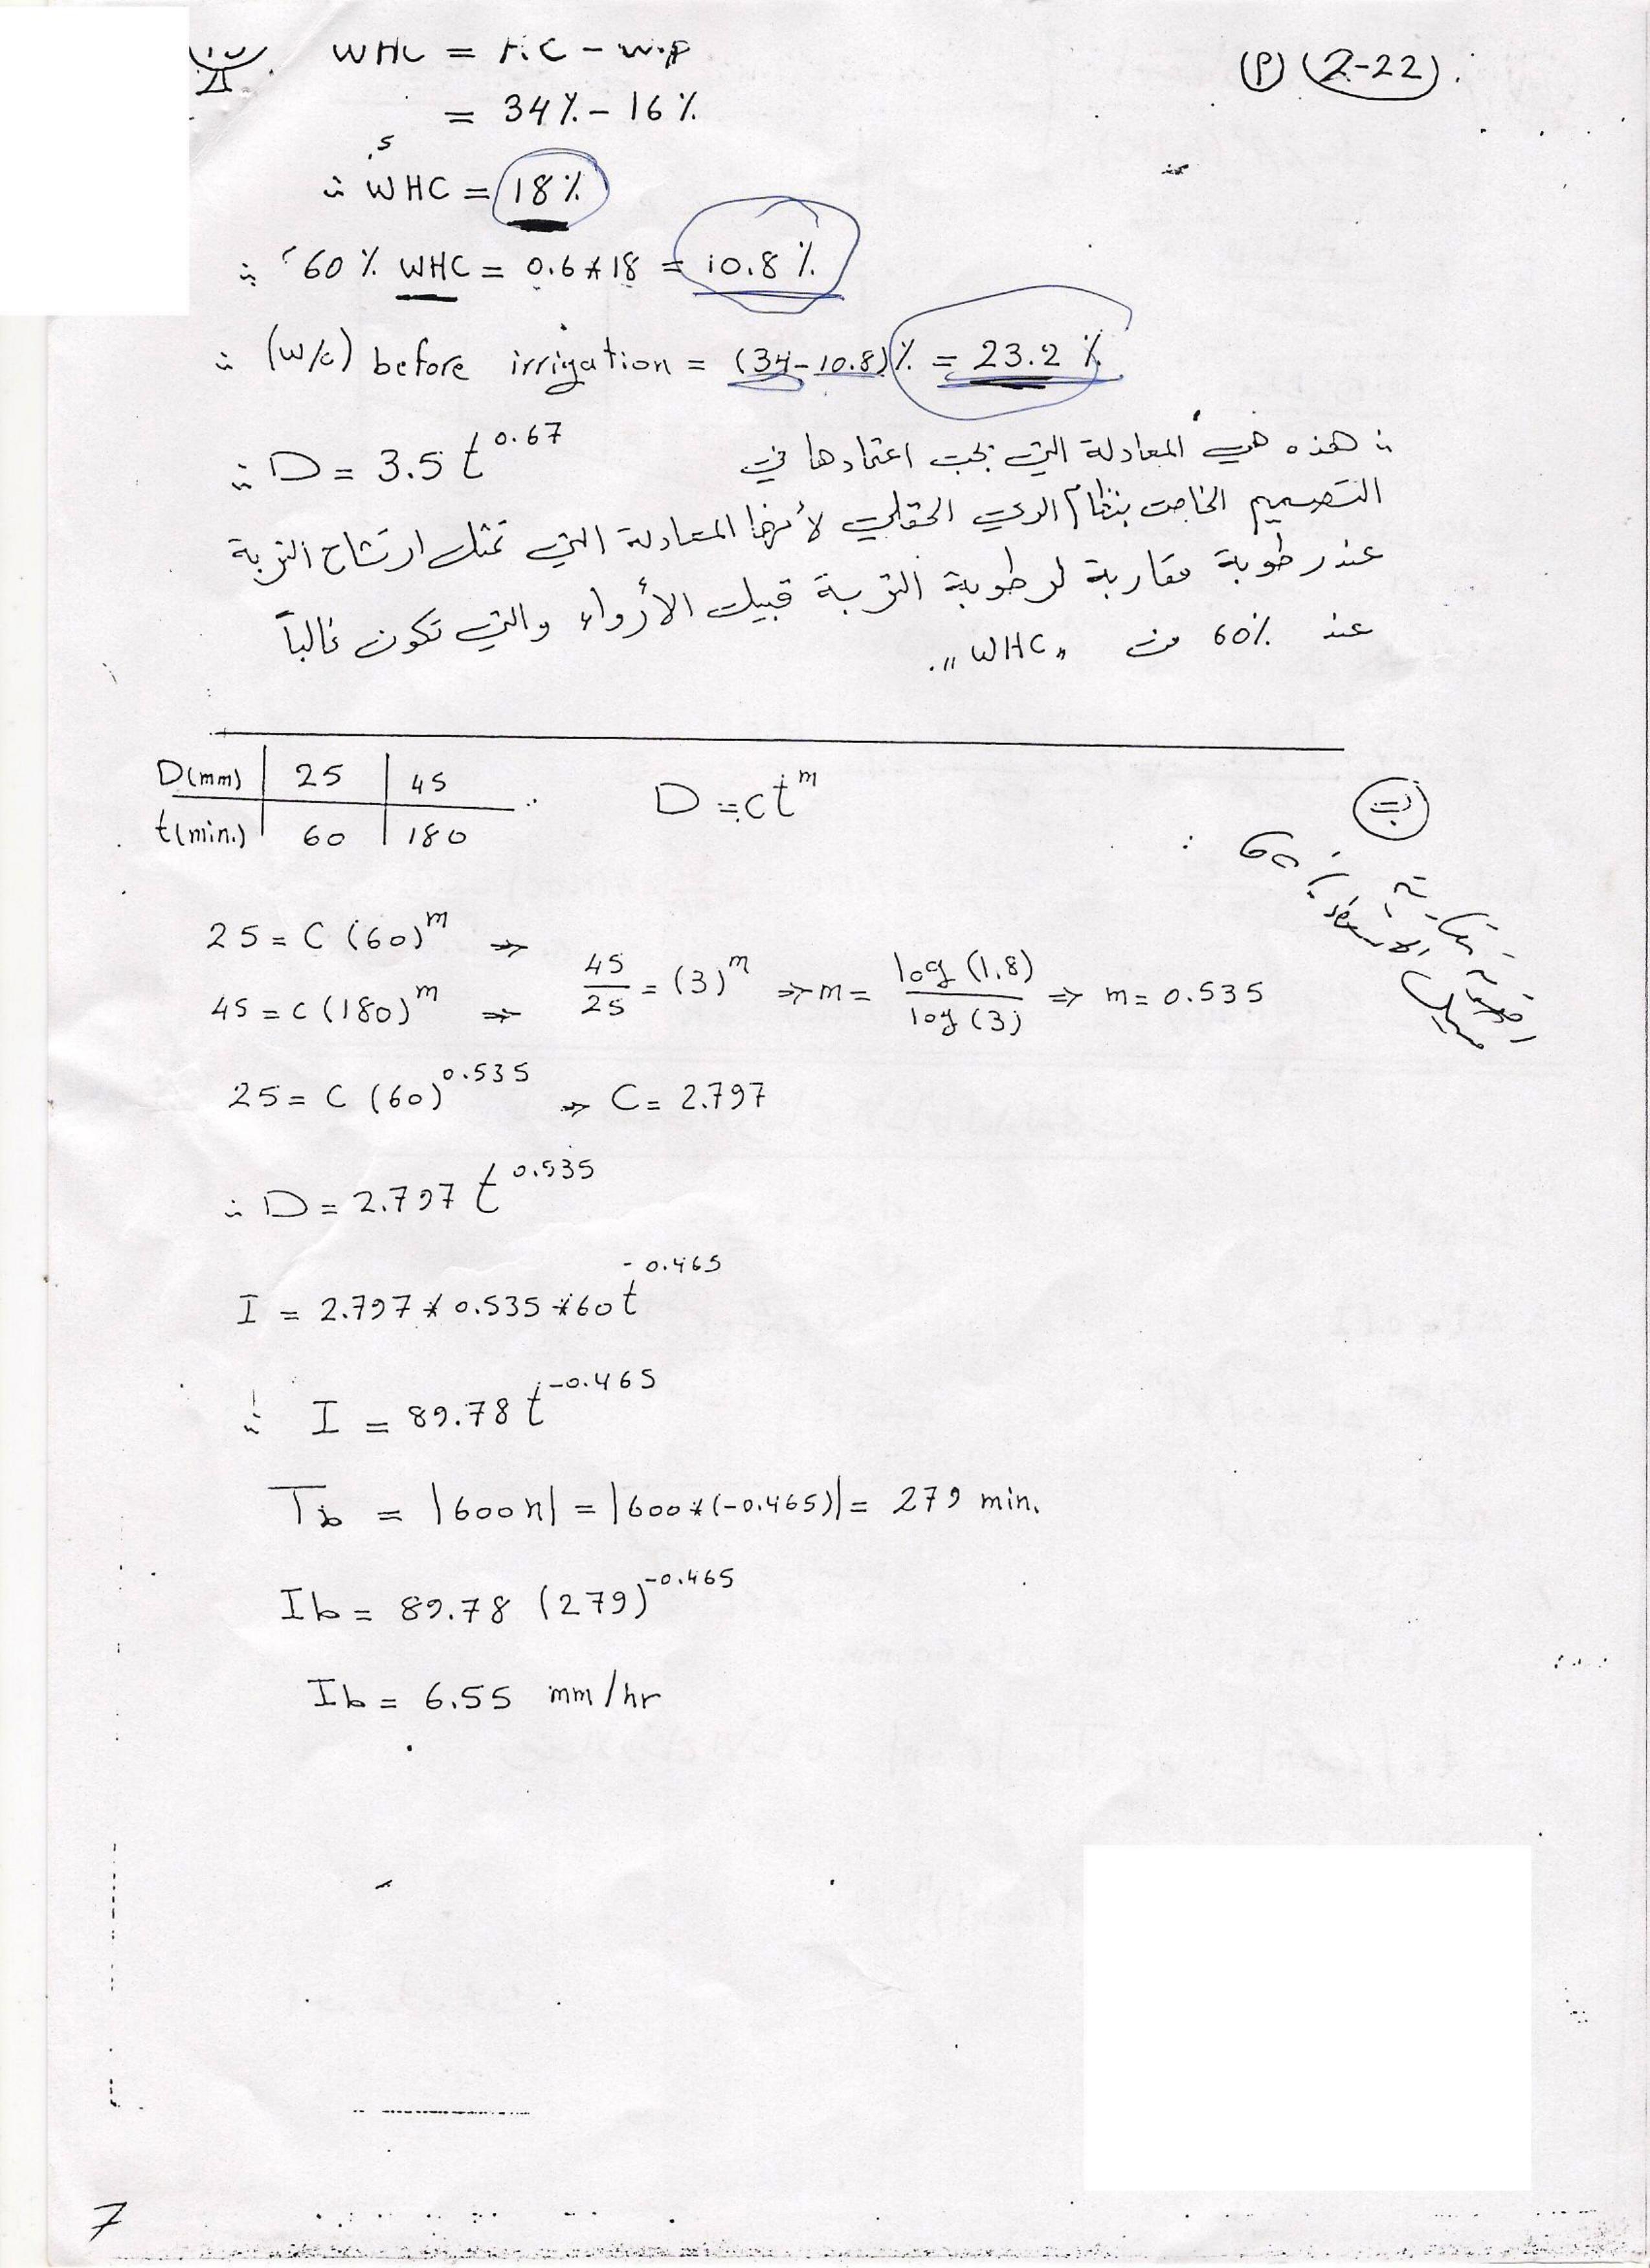 (2-22) (أ)
WHC = F.C - W.P
= 34% - 16%
∴ WHC = 18%
∴ 60% WHC = 0.6 * 18 = 10.8%
∴ (w/c) before irrigation = (34-10.8)% = 23.2%
∴ D = 3.5 t^0.67
∴ هذه هي المعادلة التي يجب اعتمادها في
التصميم الخاص بنظام الري الحقلي لأنها المعادلة التي تمثل ارتشاح التربة
عند رطوبة مقاربة لرطوبة التربة قبيل الأرواء والتي تكون غالباً
عند 60% من "WHC".
(ب)
D(mm) | 25 | 45
t(min.) | 60 | 180
D = ct^m
25 = C (60)^m ⇒
45 = C (180)^m ⇒
45/25 = (3)^m ⇒ m = log (1.8)/log (3) ⇒ m = 0.535
25 = C (60)^0.535 ⇒ C = 2.797
∴ D = 2.797 t^0.535
I = 2.797 * 0.535 * 60 t^-0.465
∴ I = 89.78 t^-0.465
Tb = |600n| = |600*(-0.465)| = 279 min.
Ib = 89.78 (279)^-0.465
Ib = 6.55 mm/hr
7